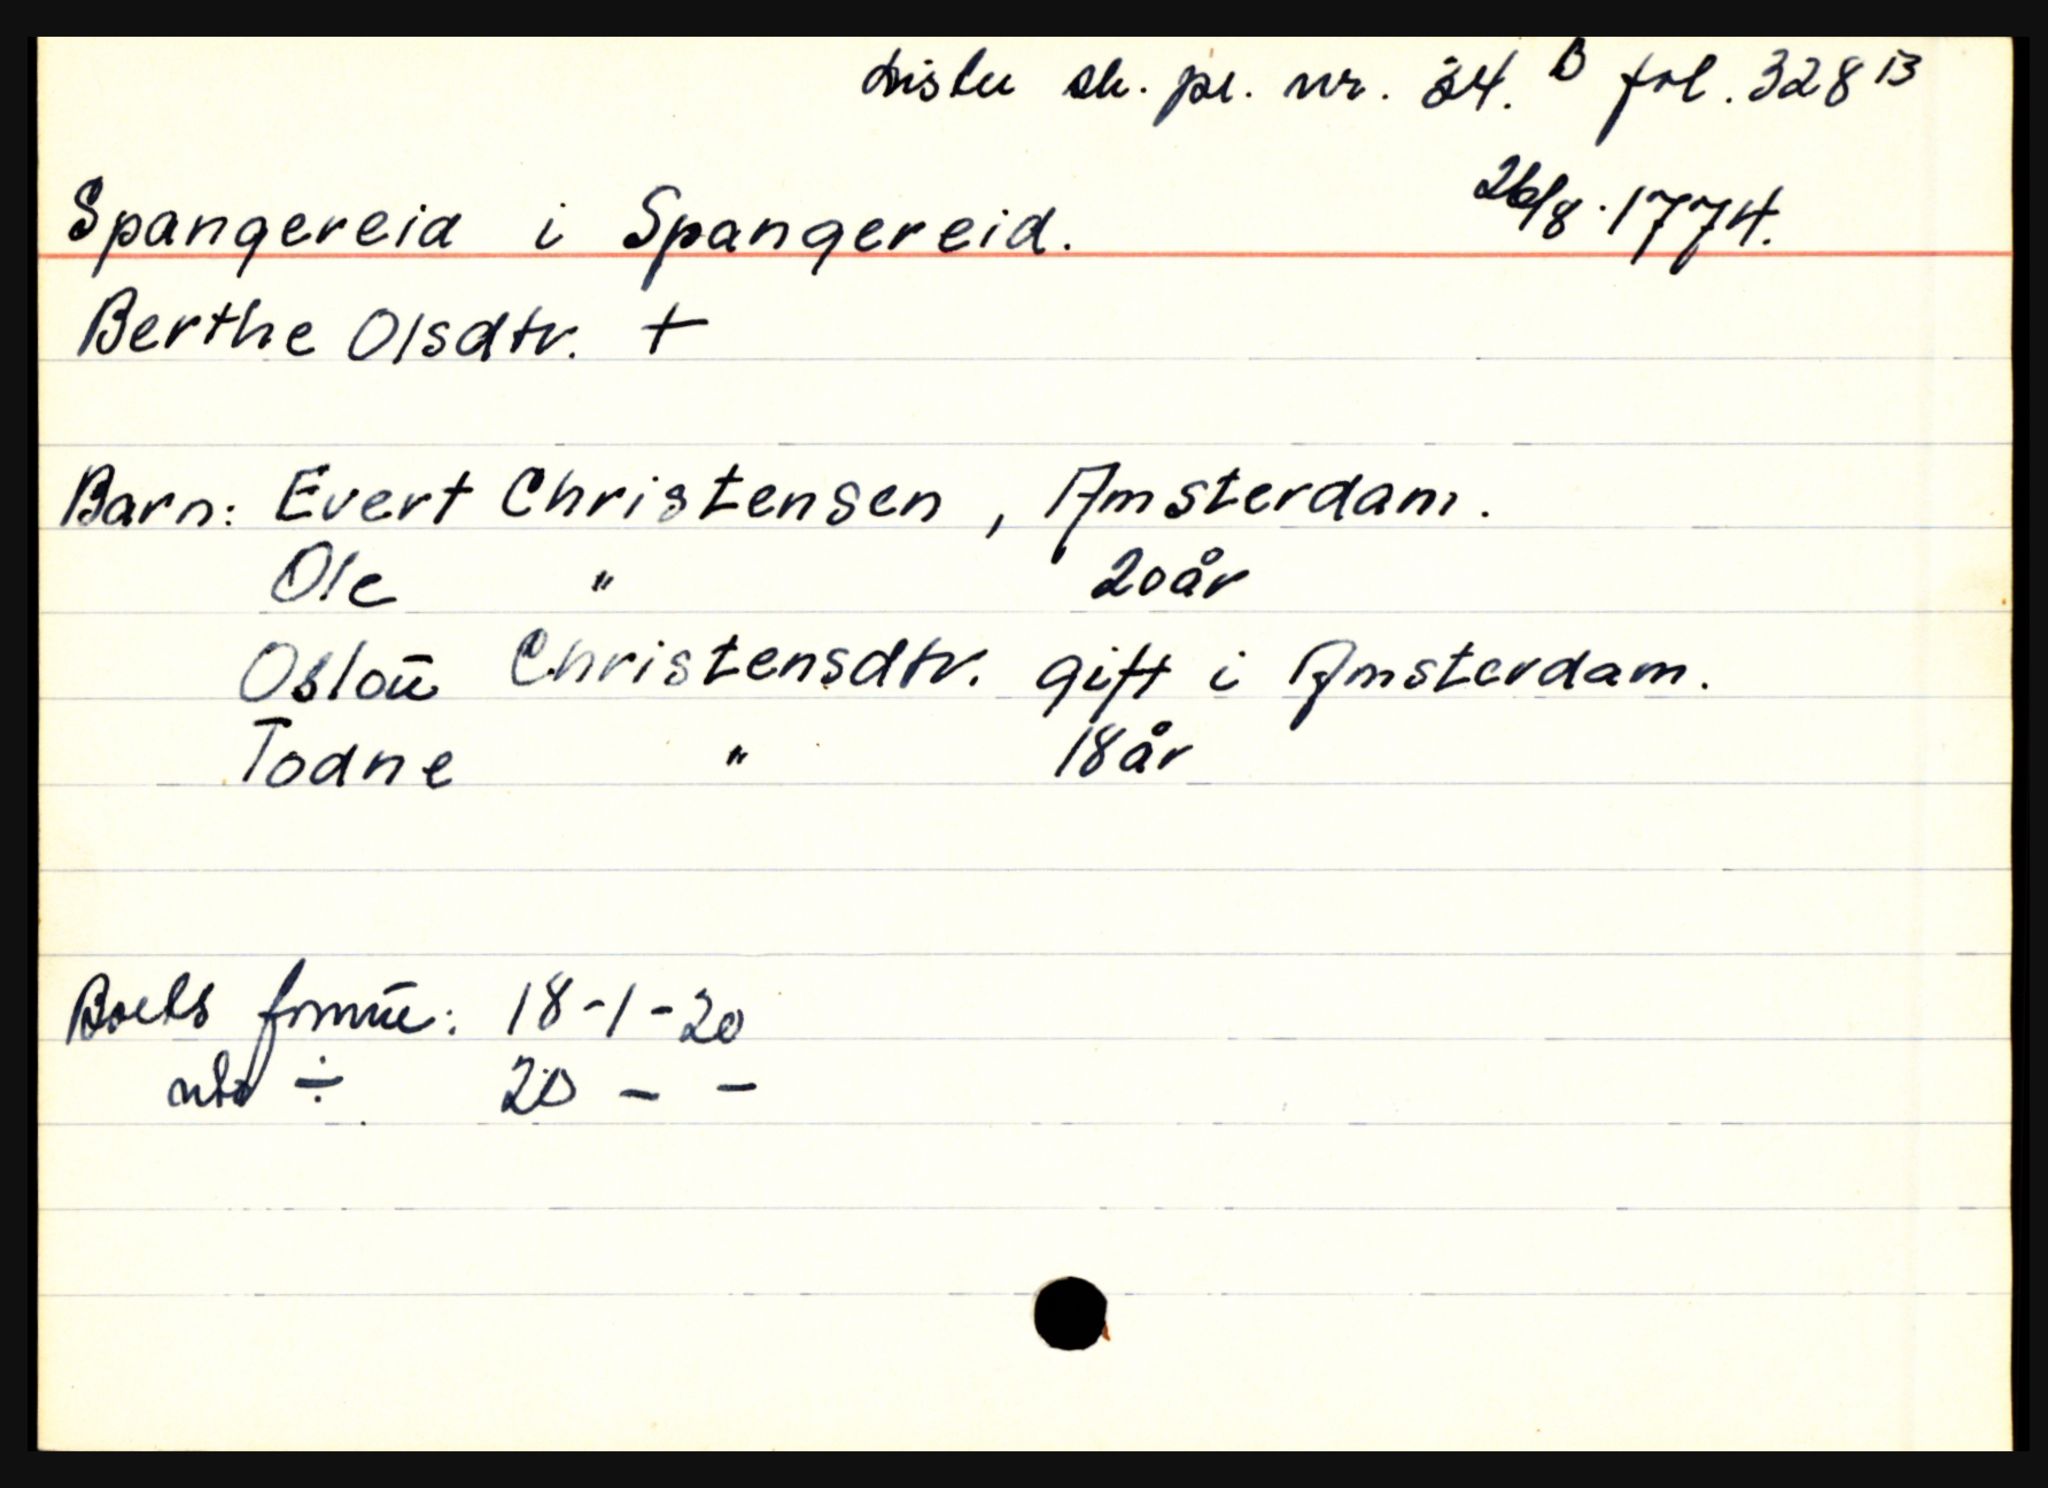 Lister sk. pr. nr. 34. B fol. 328 B
26/8. 1774.
Spangereid i Spangereid.
Berthe Olsdtr. +
Barn: Evert Christensen, Amsterdam.
Ole " 20 år
Oslou̅ Christensdtr. gift i Amsterdam.
Todne " 18 år
Boets formūe: 18-1-20
nto ÷ 20 - -